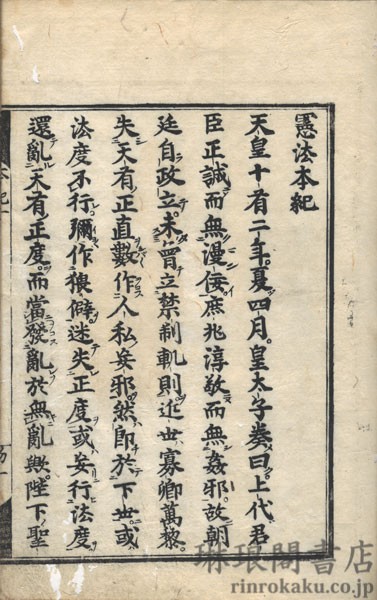 憲法本紀
天皇十有二年。夏四月。皇太子奏曰。上代君
臣正誠而無漫佞。庶兆淳敦而無姦邪。故朝
廷自政立。未曾立禁制軌則。近世寡卿萬黎。
失天有正直數作人私妄邪。然即於下世。或
法度不行彌作猥僻迷失正度。或妄行法度
還亂天有正度。而當發亂於無亂歟。陛下聖
本紀一
琳琅閣書店
rinrokaku.co.jp